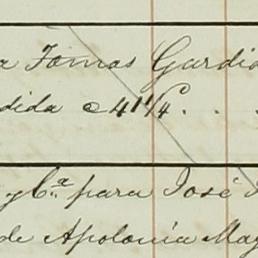 a Tomas Gardi
dida @ 41¼ c. . .
y Cª para José
de Apolonia May